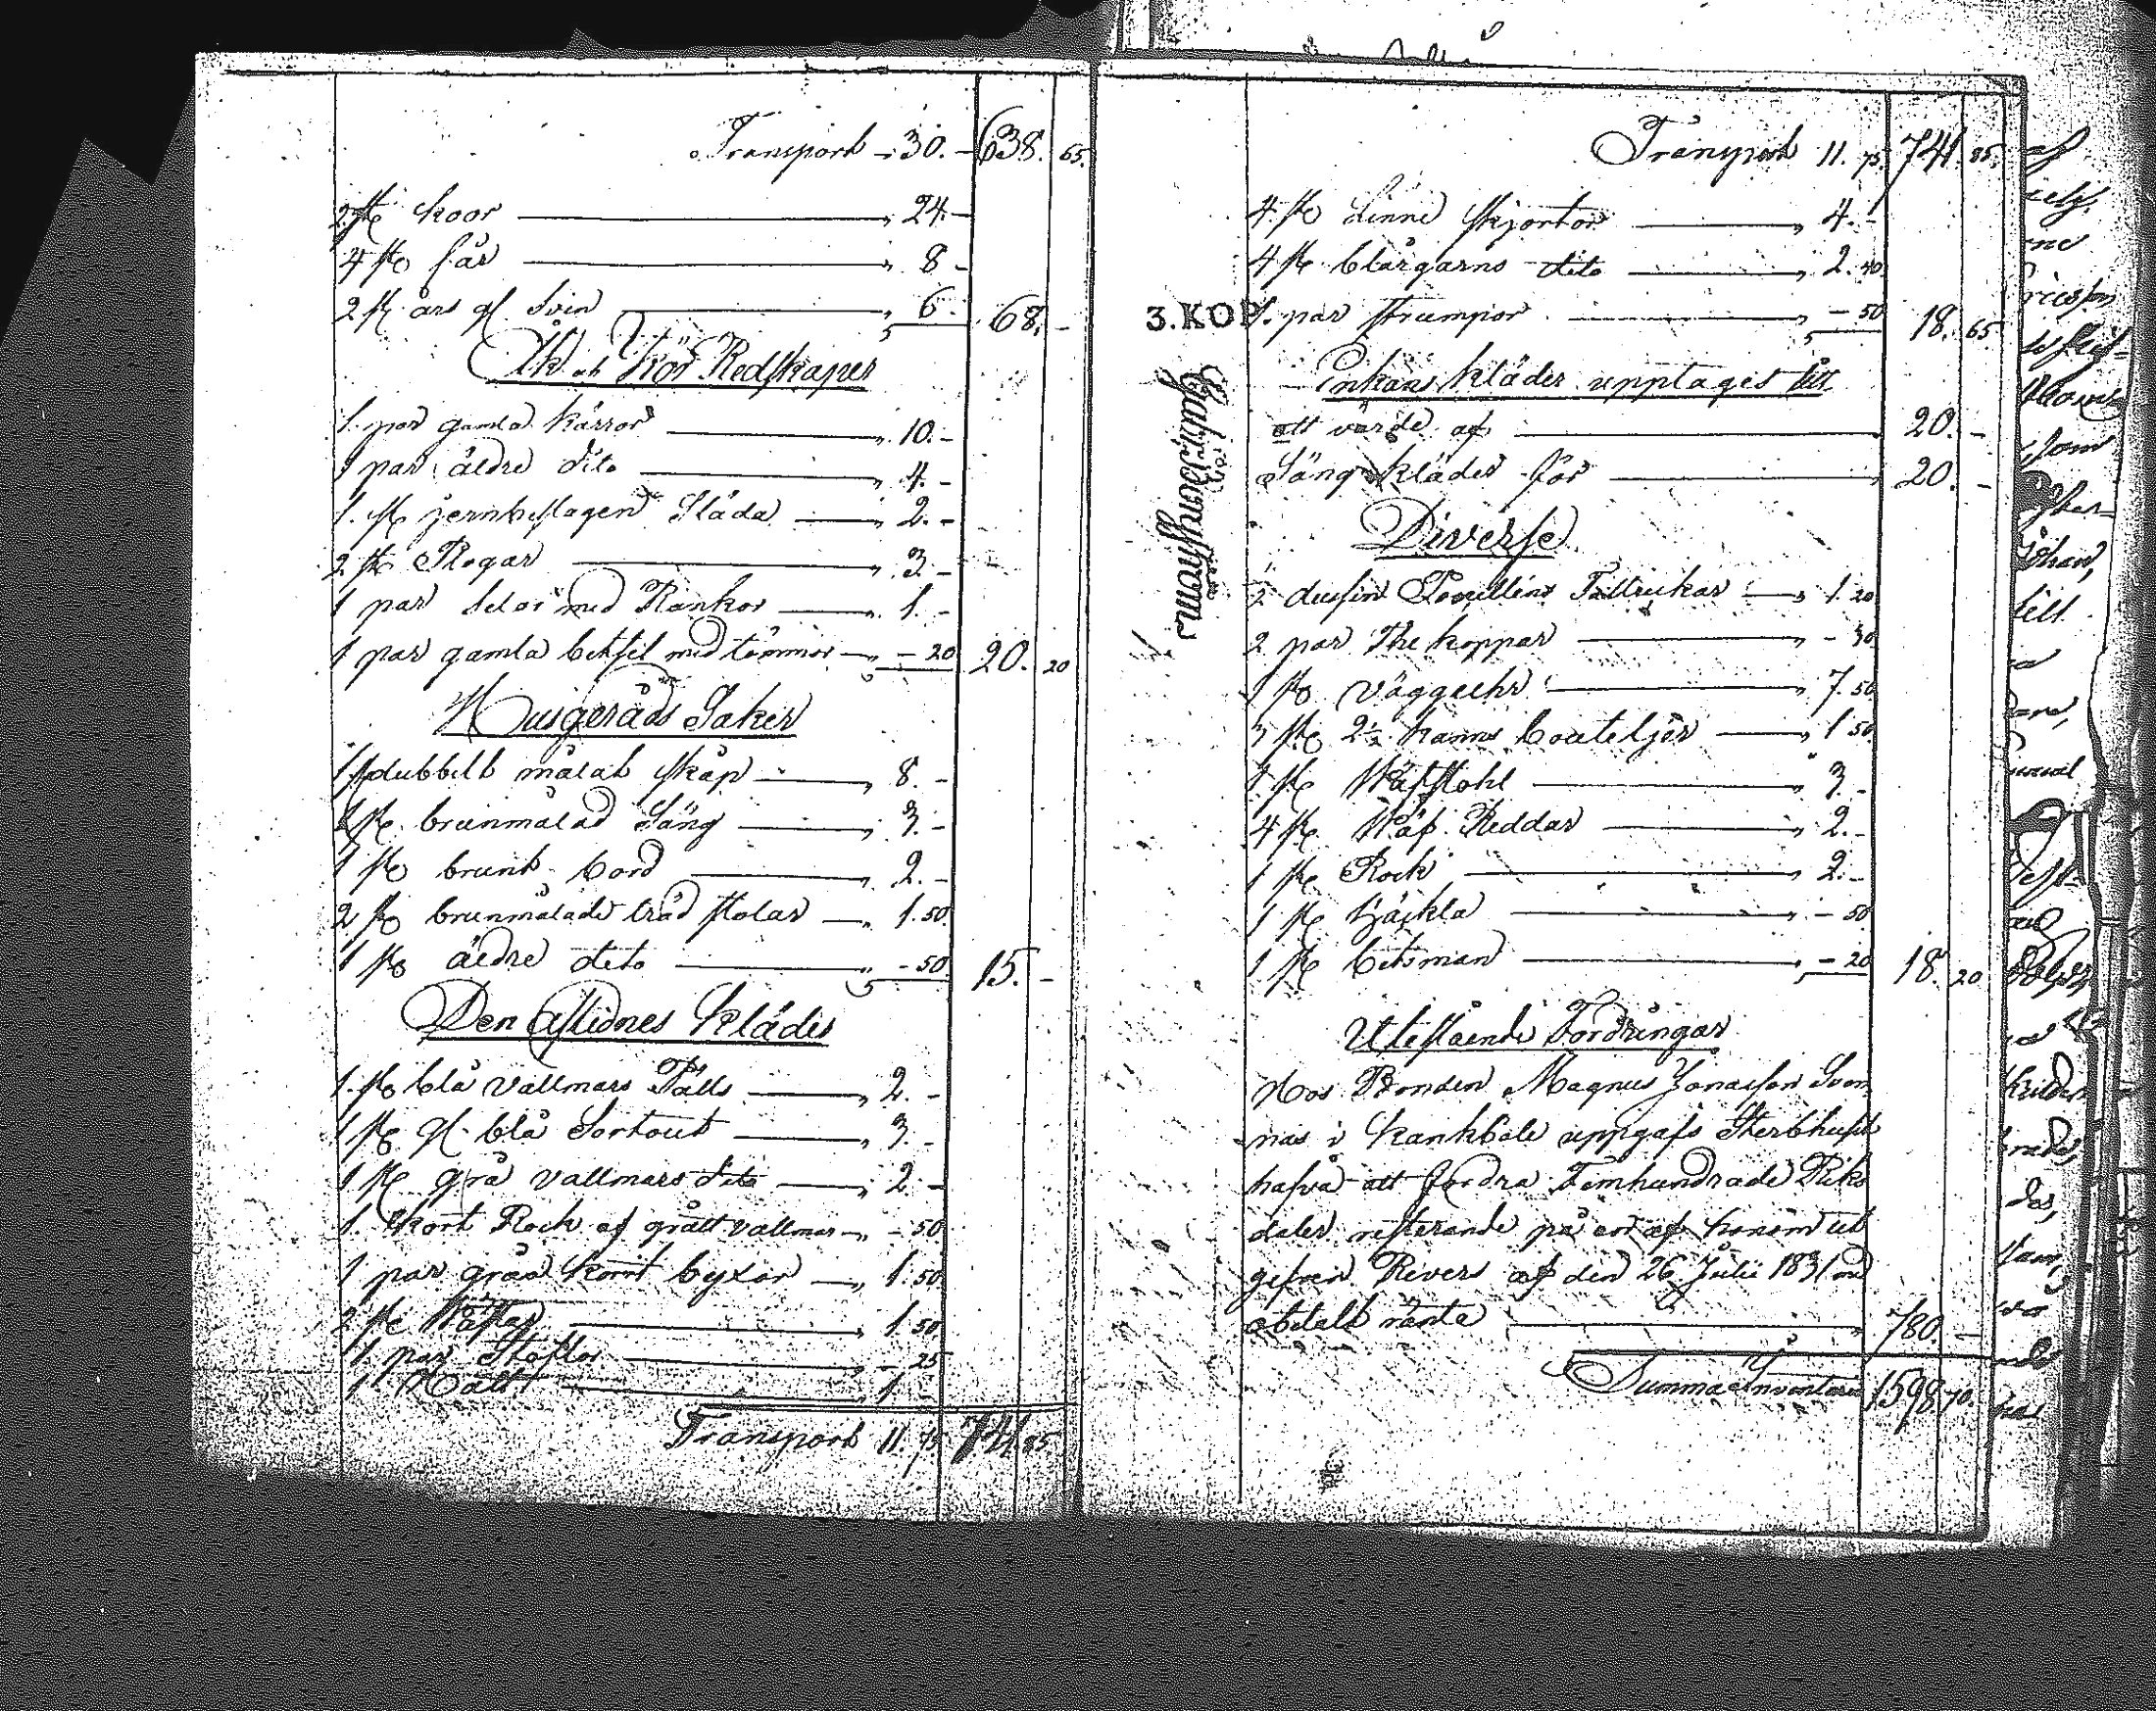 Transport - 30. - 638. 65.
2 st koor 24. -
4 st får 8 -
2 st års gl. Svin 6. 68. -
Åk och Kör Redskaper
1. par gamla kärror 10. -
1 par äldre dito 4. -
1. st jernbeslagen Släda 2. -
2 st Plogar 3. -
1 par Selar med Rankor 1. -
1 par gamla betsel med tömmar - 20 20. 20
Husgeråds Saker
1 st dubbelt målat skåp 8. -
1 st brunmålad Säng 3. -
1 st brunt bord 2. -
2 st brunmålade träd stolar 1. 50
1 st äldre dito - 50 15. -
Den aflidnes Kläder
1. st blå vallmars Pälls 2. -
1 st gl. blå Sortout 3. -
1 st grå vallmars dito 2 -
1. kort Rock af grått vallmar - 50
1 par gråa korrt byxor 1. 50
2 st Wästar 1. 50
1. par Stöflor - 25
1. Hatt 1. -
Transport 11. 75 741. 85
Transport 11. 75 741. 85.
4. st Linne skjortor 4. -
4 st blårgarns dito 2. 40
3. KOP
1. par strumpor - 50 18. 65
Enkans kläder upptages till
ett värde af 20. -
Säng kläder för 20. -
Diverse
½ dussin Porcellins Talltrickar 1. 20
2 par The koppar - 30
1 st vägguhr 7. 50
3 st 2½ kanns bouteljer 1 50
1 st Wäfstohl 3. -
4 st Wäf Reddar 2. -
1 st Rock 2. -
1 st häckla - 50
1 st betsman - 20 18. 20
Utestående Fordringar
Hos Bonden Magnus Jonasson Svan
näs i Kankböle uppgafs Sterbhuset
hafva att fordra Femhundrade Riks
daler resterande på en af honom ut
gifven Revers af den 26 Julii 1831 med
obetalt ränta 780. -
Summa Inventarii 1598. 70.